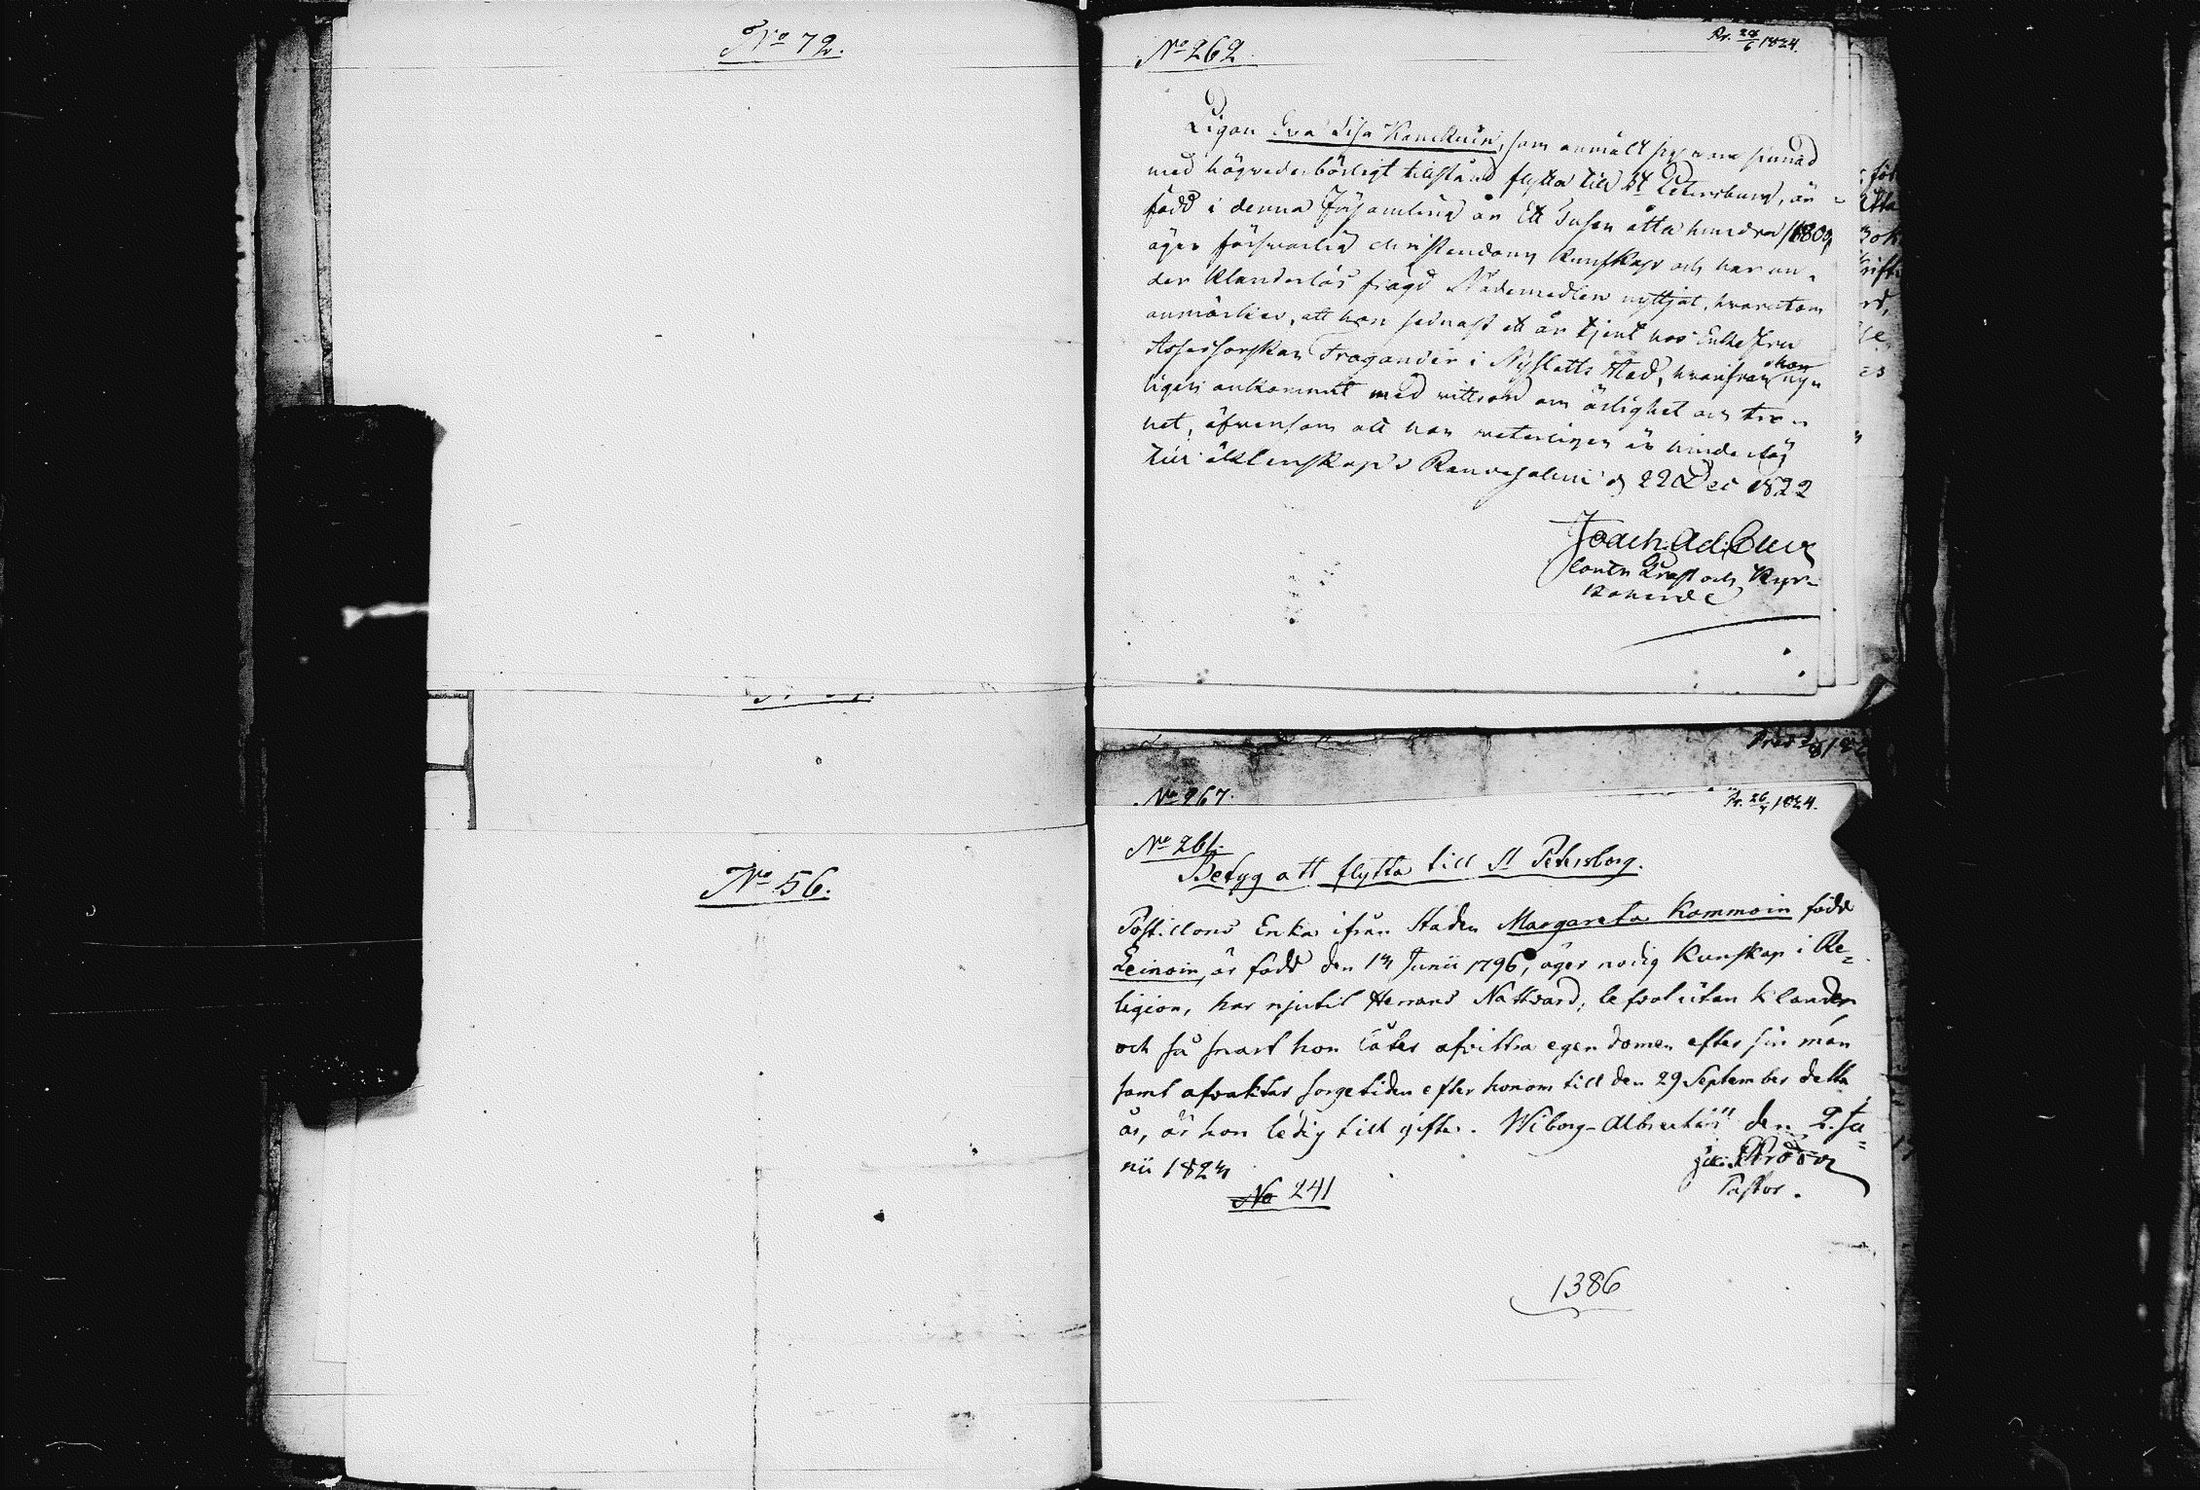 No 72.
No 56.
No 262
Pr. 28/6 1824.
Pigan Eva Lisa Kanckuin, som anmält sig vara sinnad
med högvederbörligt tillstånd flytta till St Petersburg, är
född i denna Församling år Ett Tusen åtta hundra /1800/
äger försvarlig Christendoms Kunskap och har un-
der klanderlös frägd Nådemedlen nyttjat, hvarutom
anmärkes, att hon sednast ett år tjent hos Enke Fru
Assessorskan Frogander i Nyslotts Stad, hvarifrån hon nyli-
gen ankommit med vittsord om ärlighet och tro-
het, äfvensom att hon veterligen är hinderslös
till äktenskap. Randasalmi d 22 Dec 1822
Joach. Ad.
Contr Prost och Kyrk
koherde
No 267.
Pr. 26/7 1824.
No 261.
Betyg att flytta till St Petersborg.
Postillons Enkan ifrån Staden Margareta Kommoin född
Leinoin, är född den 14 Junii 1796, äger nödig Kunskap i Re-
ligion, har njutit Herrans Nattvard, lefvat utan klander
och så snart hon låter afvittra egendomen efter sin man
samt afvaktar sorgetiden efter honom till den 29 September detta
år, är hon ledig till gifte. Wiborg den 2. Ju-
nii 1824
Pastor.
No 241
1386